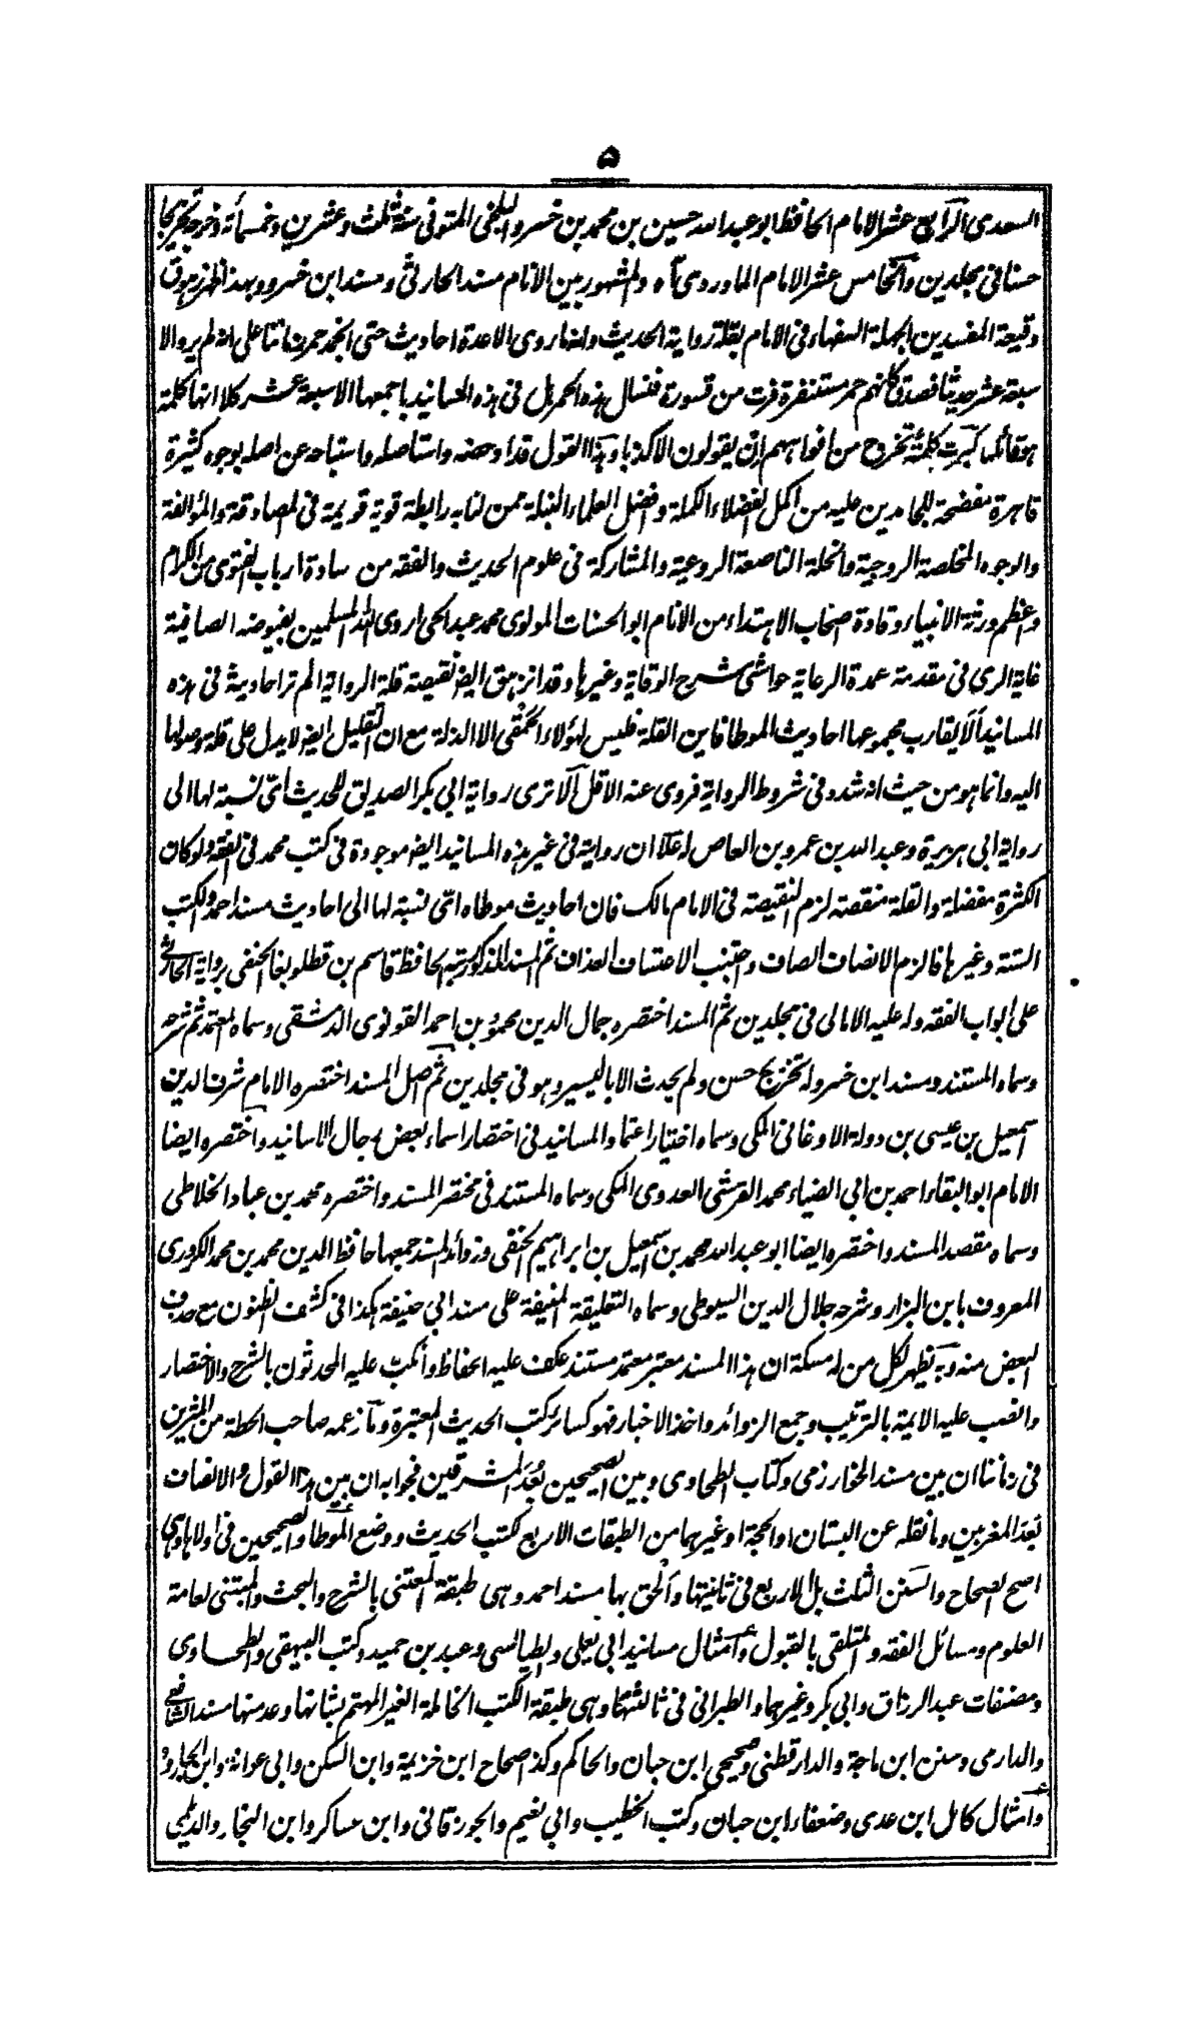 ۵
السعدى الرابع عشر الامام الحافظ ابو عبد الله حسين بن محمد بن خسرو البلخى المتوفى سنة ثلث وعشرين وخمسمأته وخرجه تخريجا
حسنا فى مجلدين والخامس عشر الامام الماوردى اه والمشهور بين الانام مسند الحارثى ومسند ابن خسرو وبهذا ظهر زهوق
وقيعة المفسدين الجهلة السفهاء فى الامام بقلة رواية الحديث وانه ما روى الا عدة احاديث حتى انجمد حمر زماننا على انه لم يرو الا
سبعة عشر حديثا فصدق كأنهم حمر مستنفرة فرت من قسورة فنسال هذه الحمر هل فى هذه المسانيد باجمعها الا سبعة عشر كلا انها كلمة
هو قائلها كبرت كلمة تخرج من افواههم ان يقولون الا كذبا وهذا القول قد اوهنه واستاصله واستباحه عن اصله بوجوه كثيرة
قاهرة مفضحة للجامدين عليه من اكمل الفضلاء الكملة وافضل العلماء النبلة ممن لنا به رابطة قوية قويمة فى المصادقة والمؤالفة
والوجوه المخلصة الروحية والخلة الناصعة الروعية والمشاركة فى علوم الحديث والفقه من سادة ارباب الفتوى من الكرام
واعظم ورثة الانبياء وقادة اصحاب الاهتداء من الانام ابو الحسنات المولوى محمد عبد الحى اروى الله المسلمين بفيوضه الصافية
غاية الرى فى مقدمة عمدة الرعاية حواشى شرح الوقاية وغيرها وقد انزهق ايضا نقيصة قلة الرواية الم تر احاديثه فى هذه
المسانيد ألا يقارب مجموعها احاديث الموطا فاين القلة فليس لهؤلاء الحمقى الا الذلة مع ان التقليل ايضا لا يدل على قلة وصولها
اليه وانما هو من حيث انه شدد فى شروط الرواية فروى عنه الاقل ألا ترى رواية ابى بكر الصديق للحديث أى نسبة لها الى
رواية ابى هريرة وعبد الله بن عمرو بن العاص له علا ان رواية فى غير هذه المسانيد ايضا موجودة فى كتب محمد فى الفقه ولو كان
الكثرة مفضلة والقلة منقصة لزم النقيصة فى الامام مالك فان احاديث موطاه اى نسبة لها الى احاديث مسند احمد والكتب
الستة وغيرها فالزم الانصاف الصاف واجتنب الاعتساف العذاف ثم المسند المذكور رتبه الحافظ قاسم بن قطلوبغا الحنفى برواية الحارثى
على ابواب الفقه وله عليه الامالى فى مجلدين ثم المسند اختصره جمال الدين محمود بن احمد القونوى الدمشقى وسماه المعتمد ثم شرحه
وسماه المستند ومسند ابن خسرو له تخريج حسن ولم يحدث الا باليسير وهو فى مجلدين ثم اصل المسند اختصره الامام شرف الدين
اسمعيل بن عيسى بن دولة الاوغانى المكى وسماه اختيار اعتماد المسانيد فى اختصار اسماء بعض رجال الاسانيد واختصره ايضا
الامام ابو البقاء احمد بن ابى الضياء محمد القرشى العدوى المكى وسماه المستند فى مختصر المسند واختصره محمد بن عباد الخلاطى
وسماه مقصد المسند واختصره ايضا ابو عبد الله محمد بن اسمعيل بن ابراهيم الحنفى وزوائد المسند جمعها حافظ الدين محمد بن محمد الكردرى
المعروف بابن البزار وشرحه جلال الدين السيوطى وسماه التعليقة المنيفة على مسند ابى حنيفة هكذا فى كشف الظنون مع حذف
البعض منه وبه يظهر لكل من له مسكة ان هذا المسند معتبر معتمد مستند عكف عليه الحفاظ وأنكب عليه المحدثون بالشرح والاختصار
وانصب عليه الايمة بالترتيب وجمع الزوائد واخذ الاخبار فهو كسائر كتب الحديث المعتبرة وما زعمه صاحب الحطة من المشرين
فى زماننا ان بين مسند الخوارزمى وكتاب الطحاوى وبين الصحيحين بعد المشرقين فجوابه ان بين هذا القول والانصاف
بعد المغربين وما نقله عن البستان او الحجة او غيرهما من الطبقات الاربع لكتب الحديث ووضع الموطا والصحيحين فى اولاها وهى
اصح الصحاح والسنن الثلث بل الاربع فى ثانيتها والحق بها مسند احمد وهى طبقة المعتنى بالشرح والبحث والمبتنى لعامة
العلوم ومسائل الفقه والمتلقى بالقبول وامثال مسانيد ابى يعلى والطيالسى وعبد بن حميد وكتب البيهقى والطحاوى
ومصنفات عبد الرزاق وابى بكر وغيرهما والطبرانى فى ثالثتها وهى طبقة الكتب الخاملة الغير المهتم بشانها وعد منها مسند الشافعى
والدارمى وسنن ابن ماجة والدارقطنى وصحيحى ابن حبان والحاكم وكذا صحاح ابن خزيمة وابن السكن وابى عوانة وابن الجارود
وامثال كامل ابن عدى وضعفاء ابن حبان وكتب الخطيب وابى نعيم والجوزقانى وابن عساكر وابن النجار والديلمى